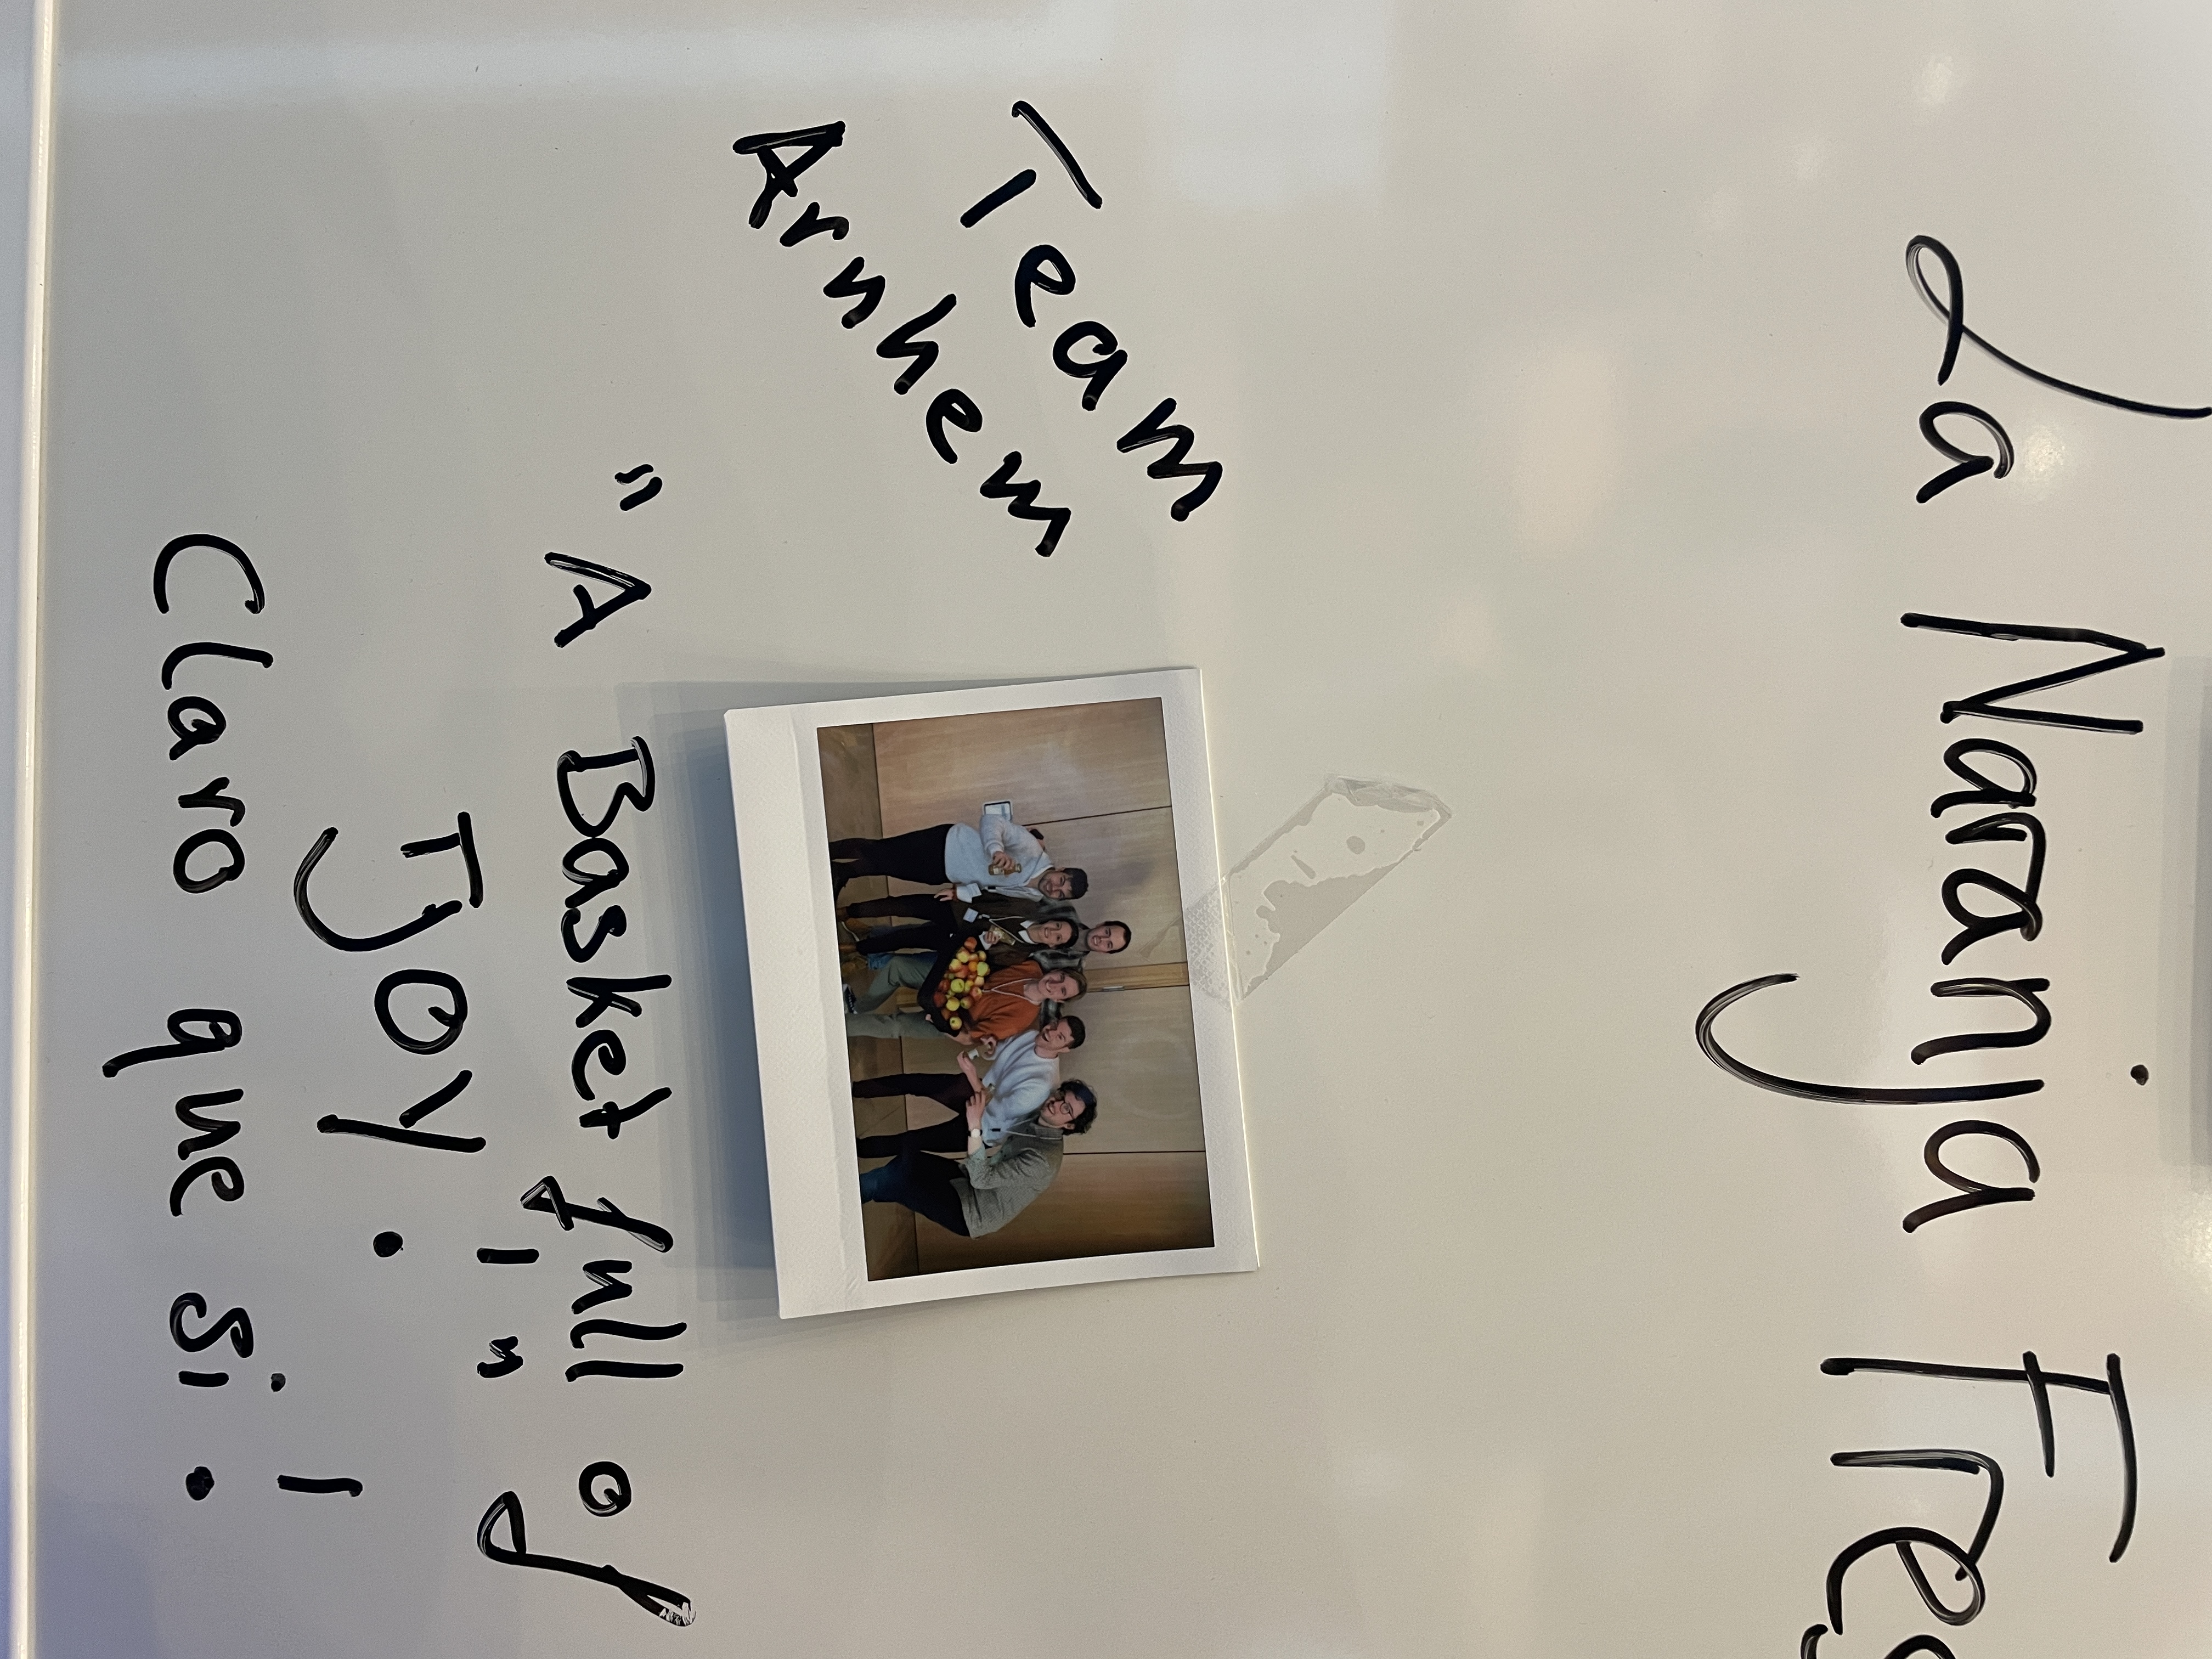 La Naranja Fres
Team
Arnhem
"A Basket full of
JOY!"
Claro que si!